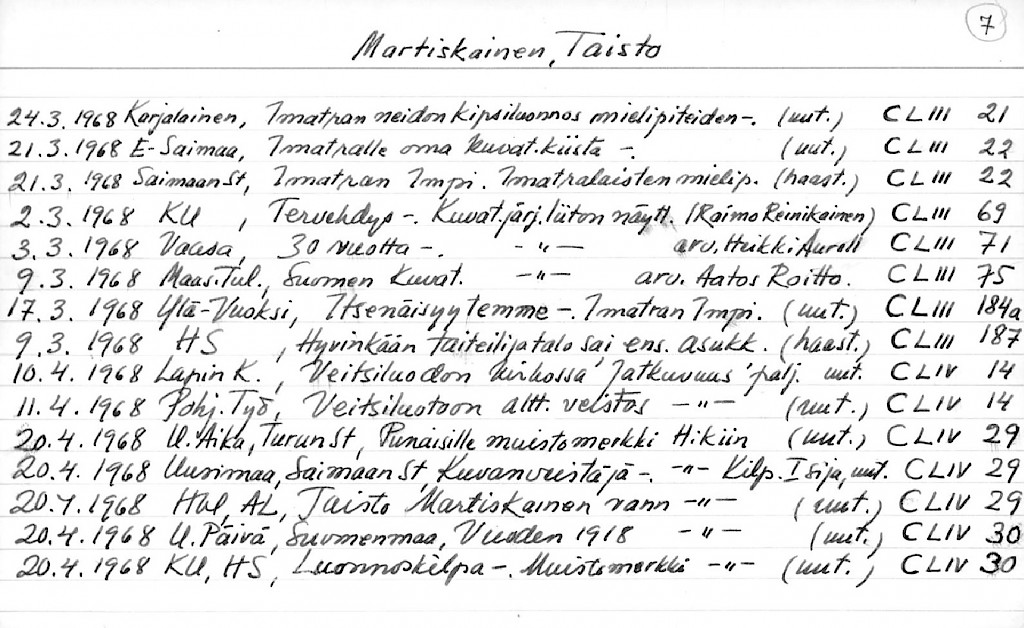 7
Martiskainen, Taisto
24.3. 1968 Karjalainen, Imatran neidon kipsiluonnos mielipiteiden-. (uut.) CLIII 21
21.3. 1968 E-Saimaa, Imatralle oma kuvat.kiista -. (uut.) CLIII 22
21.3. 1968 SaimaanSt, Imatran Impi. Imatralaisten mielip. (haast.) CLIII 22
2.3. 1968 KU, Tervehdys -. Kuvat.järj.liiton näytt. (Raimo Reinikainen) CLIII 69
3.3. 1968 Vaasa, 30 vuotta -. -"- arv. Heikki Aureli CLIII 71
9.3. 1968 Maas.Tul., Suomen Kuvat. -"- arv. Aatos Roitto. CLIII 75
17.3. 1968 Ylä-Vuoksi, Itsenäisyytemme -. Imatran Impi. (uut.) CLIII 184a
9.3. 1968 HS, Hyvinkään taiteilijatalo sai ens. asukk. (haast.) CLIII 187
10.4. 1968 Lapin K., Veitsiluodon kirkossa 'Jatkuvuus' palj. uut. CLIV 14
11.4. 1968 Pohj.Työ, Veitsiluotoon altt. veistos -"- (uut.) CLIV 14
20.4. 1968 U.Aika, TurunSt, Punaisille muistomerkki Hikiin (uut.) CLIV 29
20.4. 1968 Uusimaa, SaimaanSt, Kuvanveistäjä -. -"- Kilp. I sija, uut. CLIV 29
20.4. 1968 HML, AL, Taisto Martiskainen vann -"- (uut.) CLIV 29
20.4. 1968 U.Päivä, Suomenmaa, Vuoden 1918 -"- (uut.) CLIV 30
20.4. 1968 KU, HS, Luonnoskilpa -. Muistomerkki -"- (uut.) CLIV 30